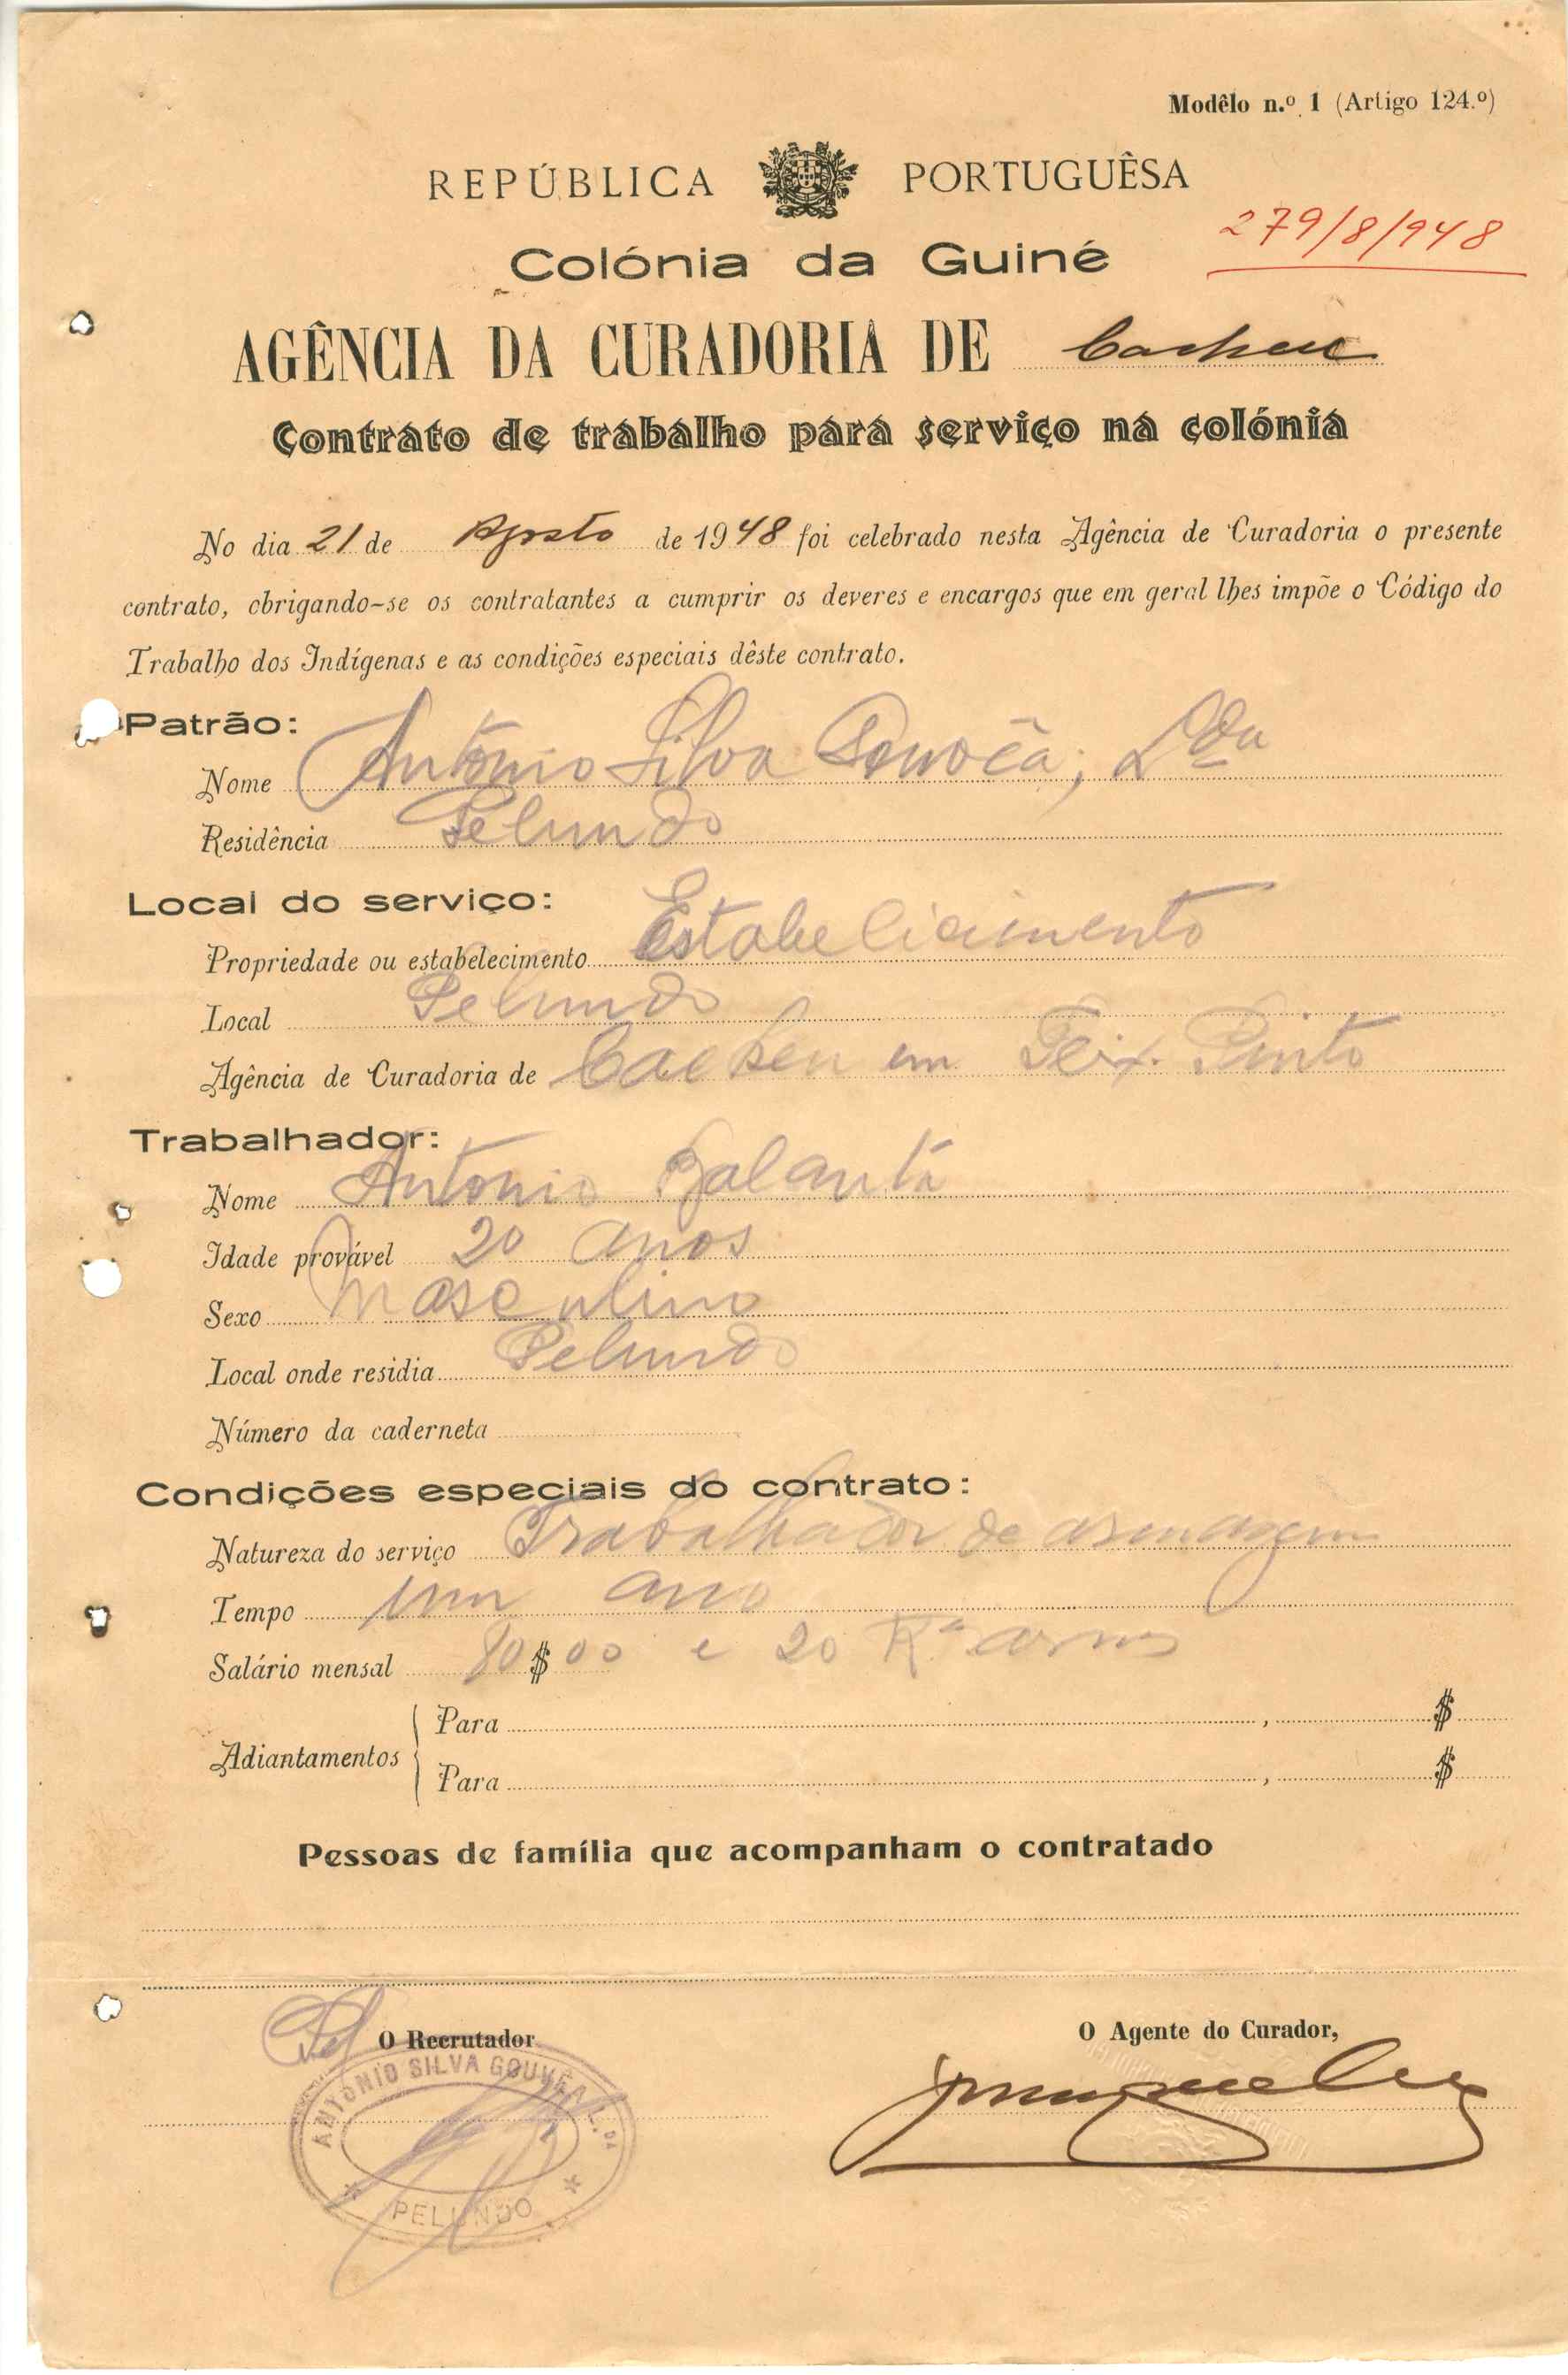 Modêlo n.º 1 (Artigo 124.º)
REPÚBLICA PORTUGUÊSA
279/8/948
Colónia da Guiné
AGÊNCIA DA CURADORIA DE Cacheu
Contrato de trabalho para serviço na colónia
No dia 21 de Agosto de 1948 foi celebrado nesta Agência de Curadoria o presente
contrato, obrigando-se os contratantes a cumprir os deveres e encargos que em geral lhes impõe o Código do
Trabalho dos Indígenas e as condições especiais dêste contrato.
Patrão:
Nome António Silva Gouvêa, Lda
Residência Pelundo
Local do serviço:
Propriedade ou estabelecimento Estabelicimento
Local Pelundo
Agência de Curadoria de Cacheu em Teix. Pinto
Trabalhador:
Nome António Balanta
Idade provável 20 anos
Sexo Masculino
Local onde residia Pelundo
Número da caderneta
Condições especiais do contrato:
Natureza do serviço Trabalhador de armazem
Tempo um ano
Salário mensal 80$00 e 20 K.ª arros
Adiantamentos
Para , $
Para , $
Pessoas de família que acompanham o contratado
O Recrutador
O Agente do Curador,
ANTÓNIO SILVA GOUVÊA, L.DA
PELUNDO